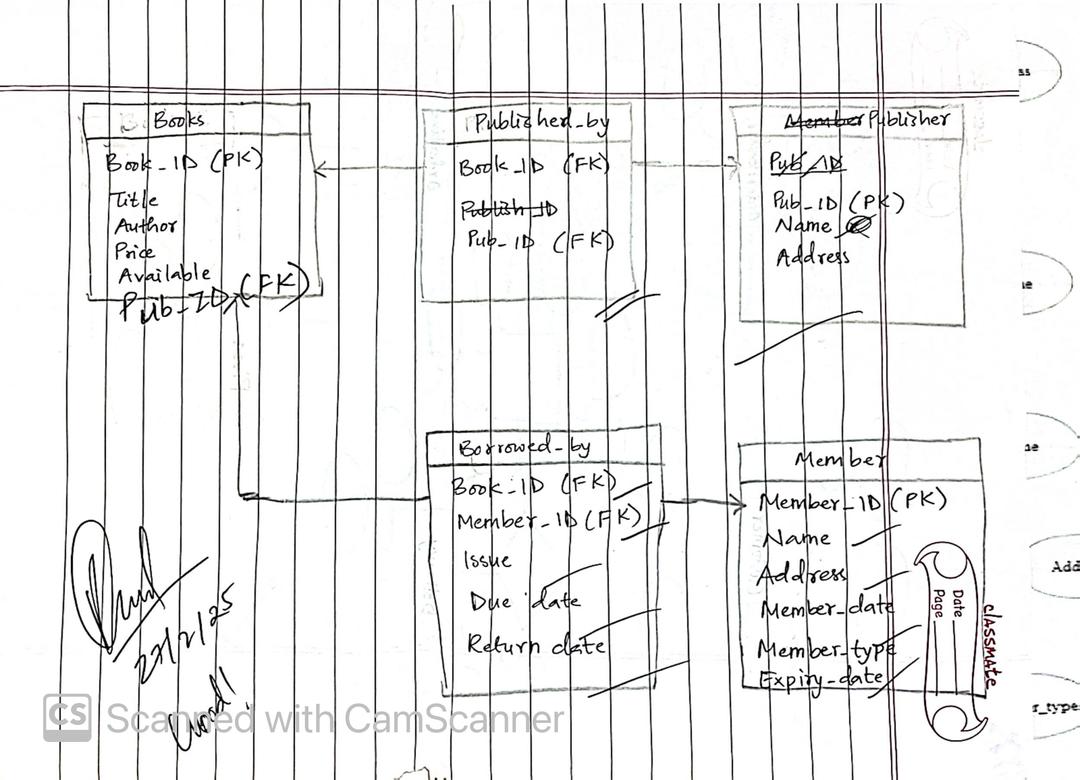 Books
Book_ID (PK)
Title
Author
Price
Available
Pub_ID (FK)
Published_by
Book_ID (FK)
Publish_ID
Pub_ID (FK)
Member Publisher
Pub_ID
Pub_ID (PK)
Name
Address
Borrowed_by
Book_ID (FK)
Member_ID (FK)
Issue
Due date
Return date
Member
Member_ID (PK)
Name
Address
Member_date
Member_type
Expiry_date
Good!
classmate
Date
Page
ss
e
Add
r_type
CS Scanned with CamScanner